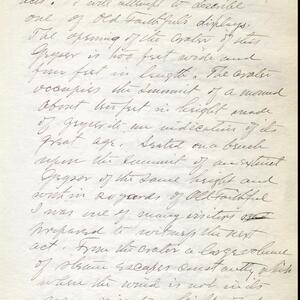 acts. I will attempt to describe
one of Old Faithful's displays.
The opening of the crater of this
Geyser is two feet wide and
four feet in length. The crater
occupies the summit of a mound
about two feet in height made
of geyserite an indication of its
great age. Seated on a bench
upon the summit of an extinct
Geyser of the same height and
within 20 yards of Old Faithful
I was one of many visitors
prepared to witness the next
act. From the crater a large volume
of steam escapes constantly, which
where the wind is not in its